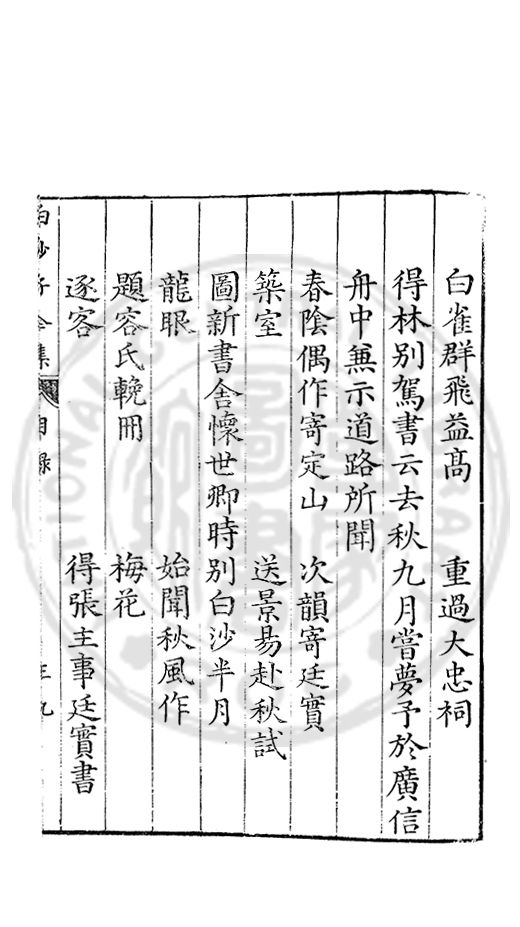 白雀群飛益髙　重過大忠祠
得林別駕書云去秋九月嘗夢予於廣信
舟中無示道路所聞
春陰偶作寄定山　次韻寄廷實
築室　送景易赴秋試
圖新書舍懷世卿時別白沙半月
龍眼　始聞秋風作
題容氏輓冊　梅花
逐客　得張主事廷實書
白沙子全集　目錄